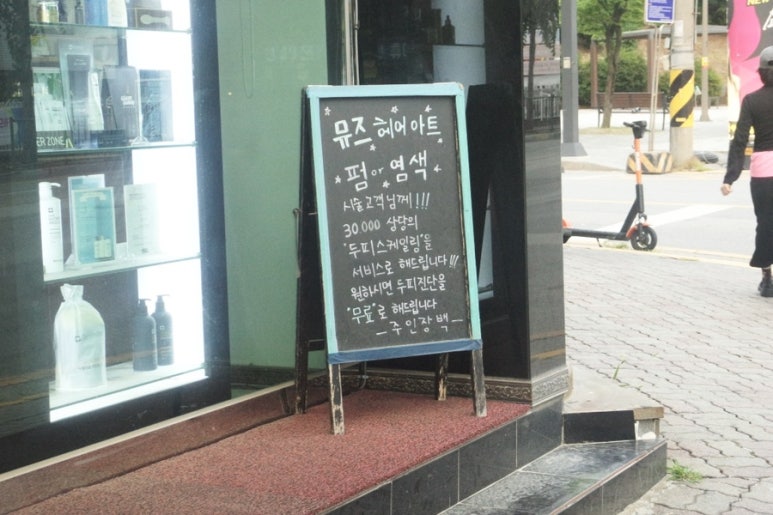 뮤즈 헤어아트
펌 or 염색
시술고객님께!!!
30.000 상당의
"두피스케일링"을
서비스로 해드립니다!!!
원하시면 두피진단을
"무료"로 해드립니다
-주인장백-